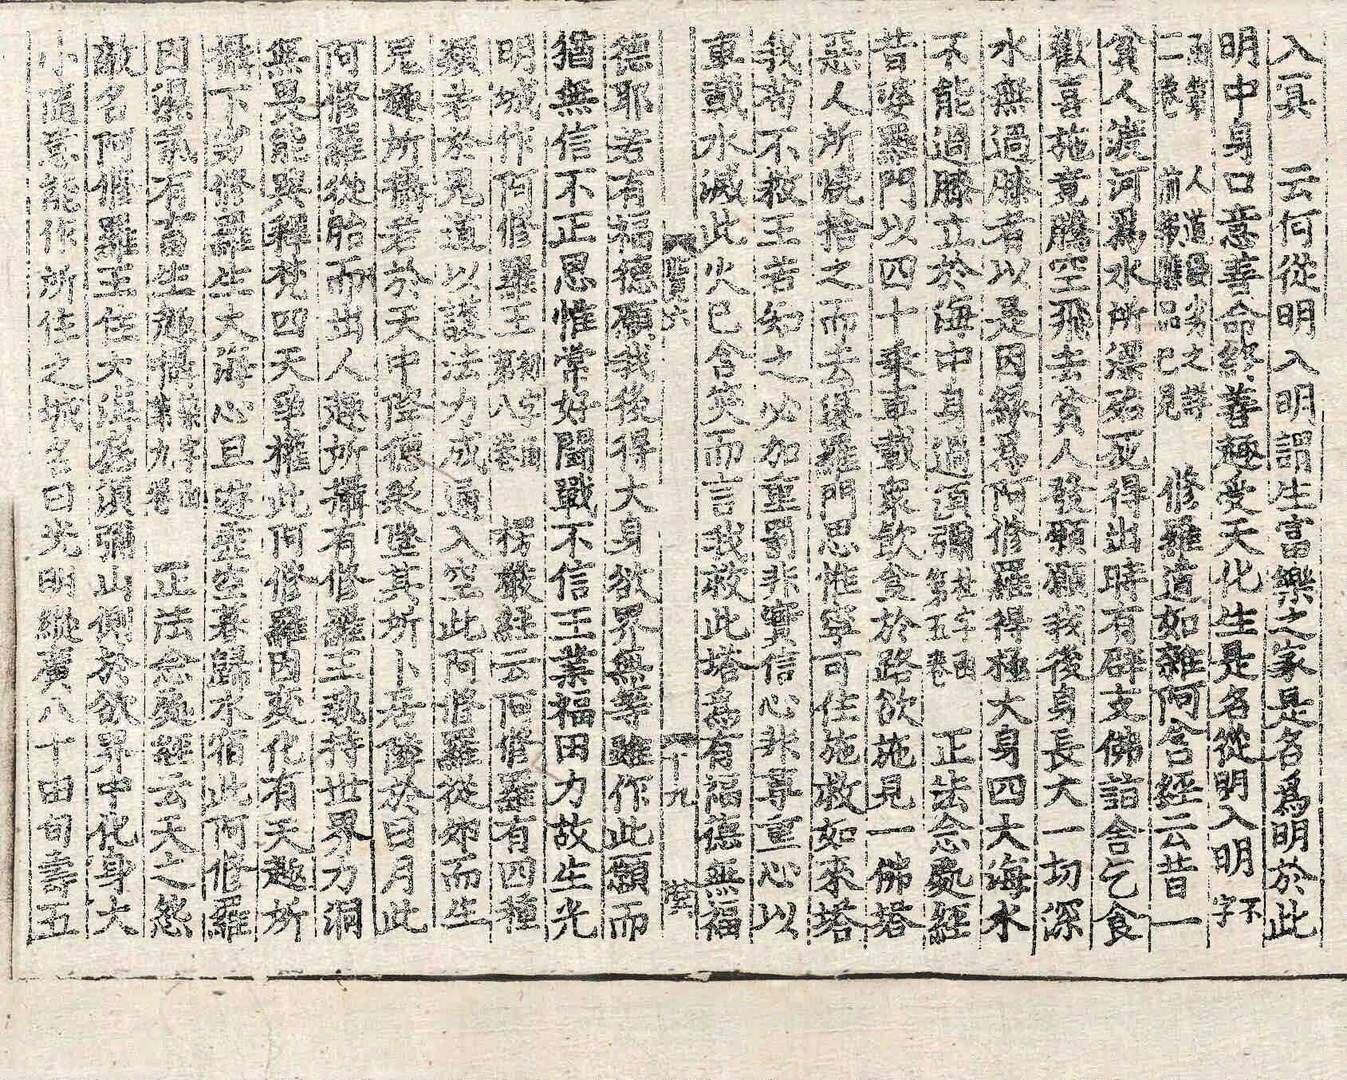 入冥　云何從明入明謂生富樂之家是名爲明於此
明中身口意善命終善趣受天化生是名從明入明不字
函第二卷　人道  之詳前 品已見　修羅道如雜阿含經云昔一
貧人渡河爲水所漂殆死得出時有辟支佛詣舍乞食
歡喜施竟騰空飛去貧人發願願我後身長大一切深
水無過膝者以是因緣爲阿修羅得極大身四大海水
不能過膝立於海中身過須彌 字函第五卷　正法念處經
昔婆羅門以四十乘車載眾飮食於路欲施見一佛塔
惡人所燒捨之而去婆羅門思惟寧可住施救如來塔
我若不救王若知之必加重罰非實信心非尊重心以
車載水滅此火已含笑而言我救此塔爲有福德無福
六　十九
德耶若有福德願我後得大身欲界無等雖作此願而
猶無信不正思惟常好鬪戰不信王業福田力故生光
明城作阿修羅王 字函第八卷　楞嚴經云阿修羅有四種
類若於鬼道以護法力成通入空此阿修羅從卵而生
鬼趣所攝若於天中降德眾墜其所卜居隣於日月此
阿修羅從胎而出人趣所攝有修羅王執持世界力洞
無畏能與釋梵四天爭權此阿修羅因變化有天趣所
攝下劣修羅生大海心旦遊虛空暮歸水宿此阿修羅
因濕氣有畜生趣攝 字函第九卷　正法念處經云天之怨
敵名阿修羅王住大海底須彌山側於欲界中化身大
小隨意能作所住之城名曰光明縱廣八十由旬壽五